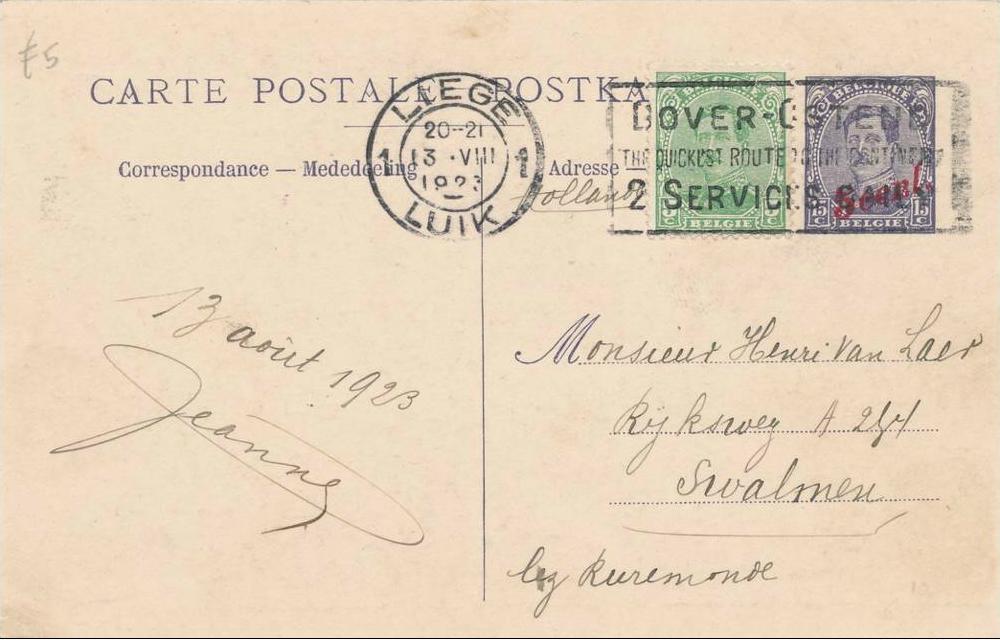 £5
CARTE POSTALE POSTKA
Correspondance — Mededeeling
Adresse —
Holland
LIEGE
1 20-21 1
13 · VIII
1923
LUIK
DOVER-OSTEND
THE QUICKEST ROUTE TO THE CONTINENT
2 SERVICES DAILY
BELGIQUE
15 C 15 C
BELGIE BELGIE
13 août 1923
Jeanne
Monsieur Henri Van Laer
Rijksweg A
Swalmen
bij Ruremonde